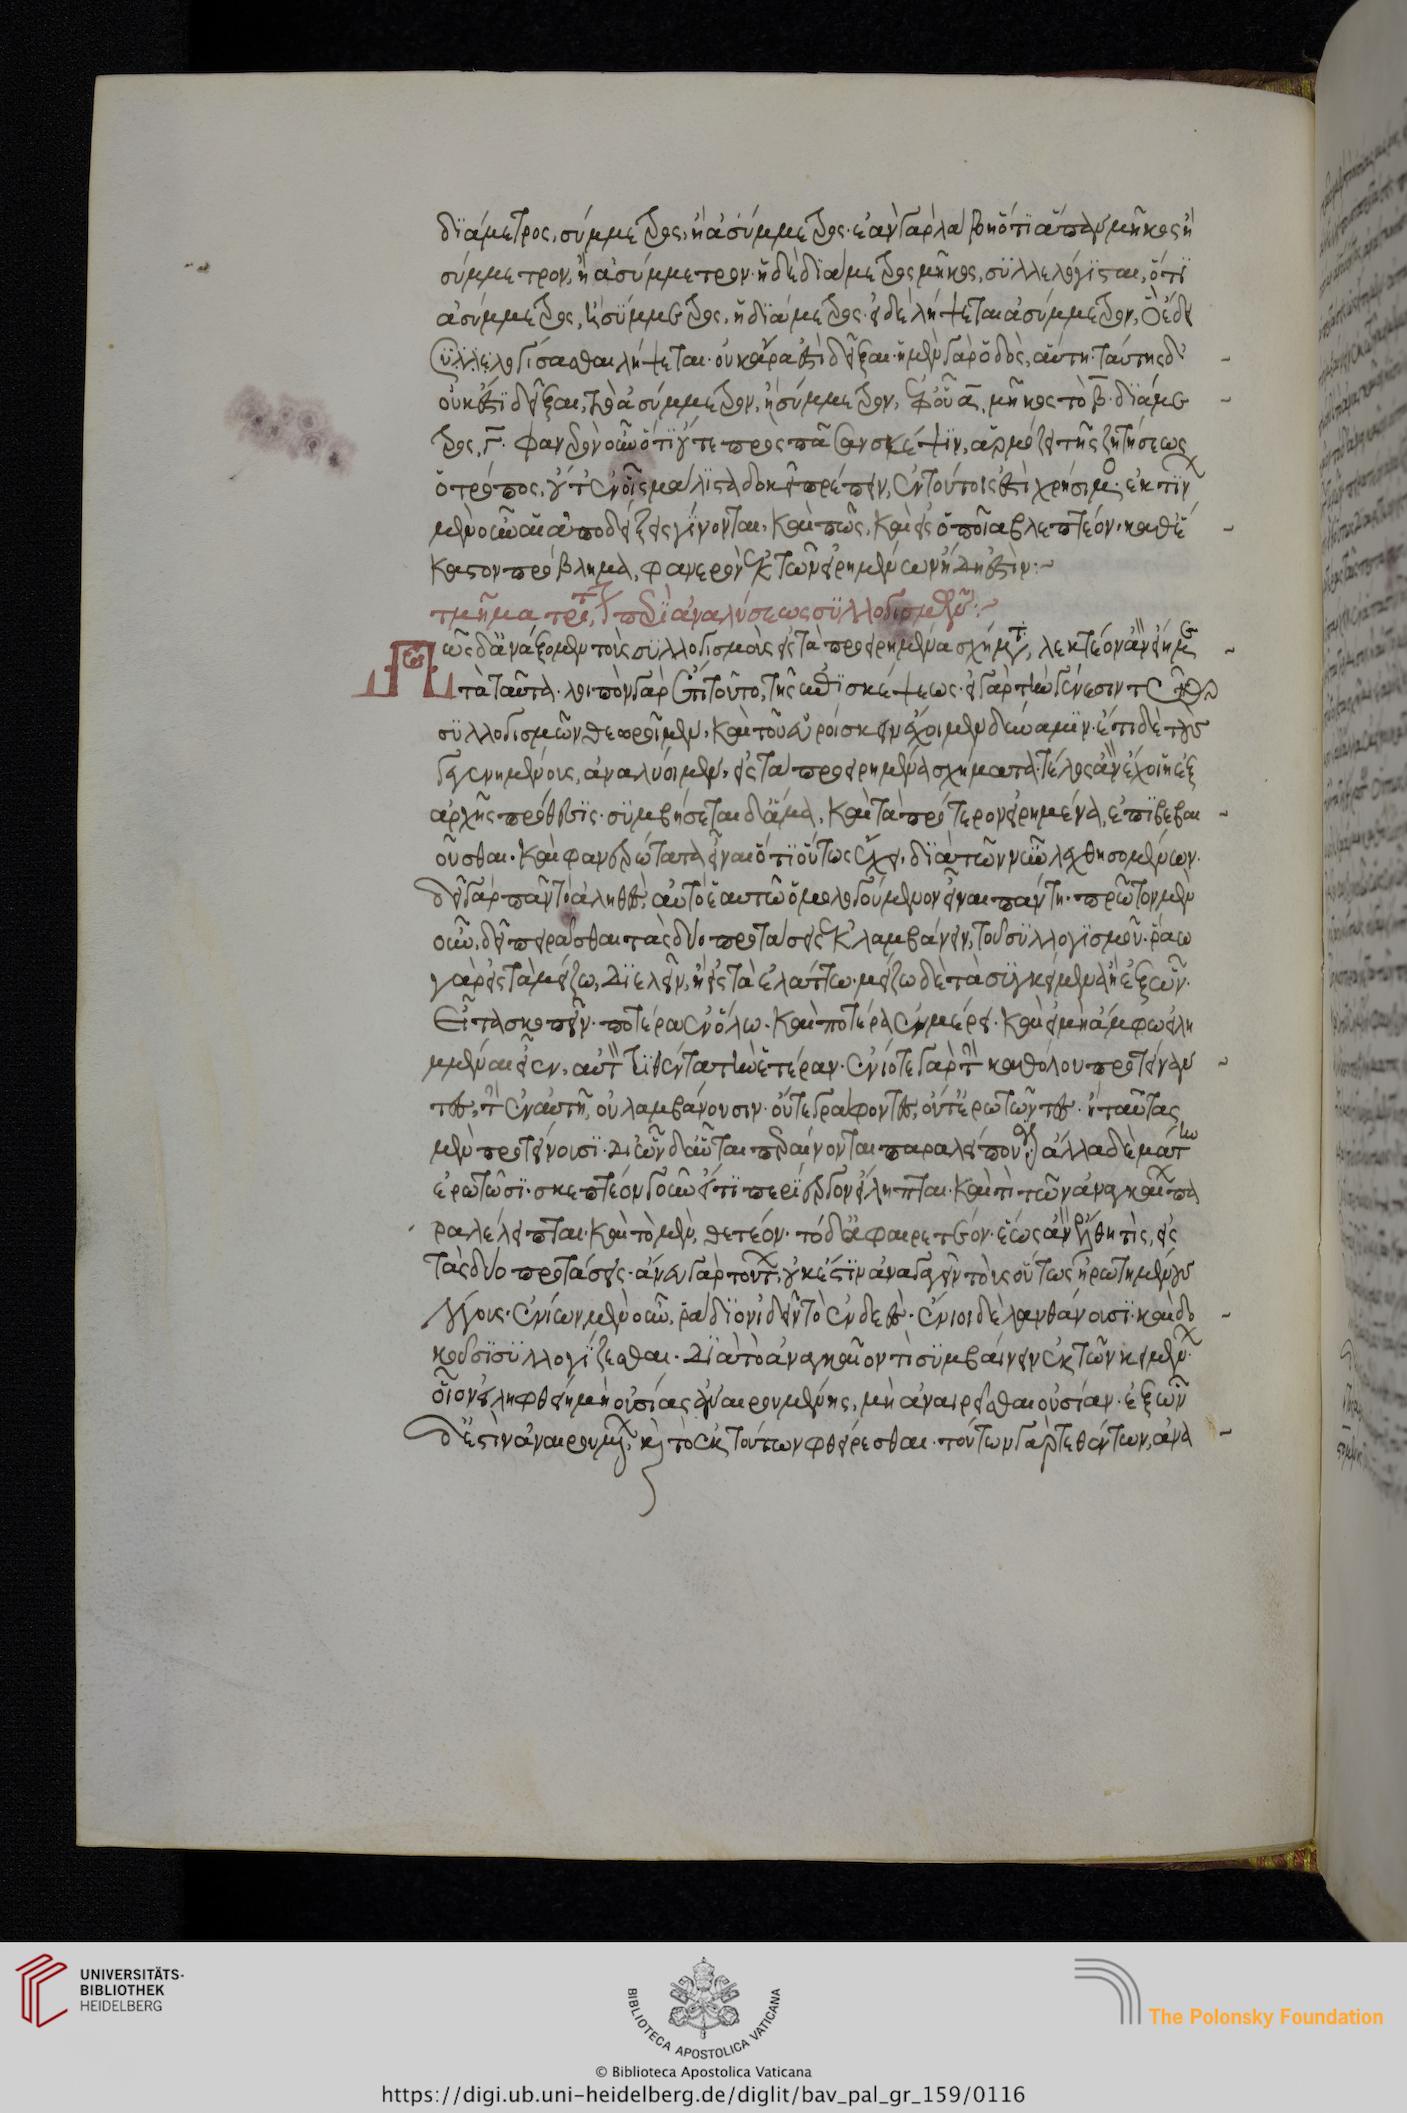 διάμετρος, σύμμετρος, ἢ ἀσύμμετρος· ἐὰν γὰρ λάβῃ ὅτι ἅπαν μῆκος ἢ
σύμμετρον, ἢ ἀσύμμετρον· ἡ δὲ διάμετρος μῆκος, συλλελόγισται, ὅτι
ἀσύμμετρος, ἢ σύμμετρος, ἡ διάμετρος· εἰ δὲ λήψεται ἀσύμμετρον, ὃ ἔδει
συλλελογίσασθαι λήψεται· οὐκ ἄρα ἐστὶ δεῖξαι· ἡ μὲν γὰρ ὁδὸς, αὕτη· ταύτης δ'
οὐκ ἔστι δεῖξαι, τὸ ἀσύμμετρον, ἢ σύμμετρον, ἐφ' οὗ α, μῆκος τὸ β· διάμε
τρος, γ· φανερὸν οὖν ὅτι οὔτε πρὸς πᾶσαν σκέψιν, ἁρμόζει τῆς ζητήσεως
ὁ τρόπος, οὔτ' ἐν οἷς μάλιστα δοκεῖ πρέπειν, ἐν τούτοις ἐστὶ χρήσιμος· ἐκ τίνων
μὲν οὖν αἱ ἀποδείξεις γίνονται, καὶ πῶς, καὶ εἰς ὁποῖα βλεπτέον, καθ' ἕ
καστον πρόβλημα, φανερὸν ἐκ τῶν εἰρημένων ἤδη ἐστίν:~
τμῆμα τρίτον περὶ ἀναλύσεως συλλογισμῶν:~
Πῶς δ' ἀνάξομεν τοὺς συλλογισμοὺς εἰς τὰ προειρημένα σχήματα, λεκτέον ἂν εἴη με
τὰ ταῦτα· λοιπὸν γὰρ ἔτι τοῦτο, τῆς σκέψεως· εἰ γὰρ τὴν γένεσιν τῶν
συλλογισμῶν θεωροῖμεν, καὶ τοῦ εὑρίσκειν ἔχοιμεν δύναμιν· ἔτι δὲ τοὺς
γεγενημένους, ἀναλύοιμεν, εἰς τὰ προειρημένα σχήματα· τέλος ἂν ἔχοι ἡ ἐξ
ἀρχῆς πρόθεσις· συμβήσεται δ' ἅμα, καὶ τὰ πρότερον εἰρημένα, ἐπιβεβαι
οῦσθαι· καὶ φανερώτατα εἶναι ὅτι οὕτως ἔχει, διὰ τῶν νῦν λεχθησομένων·
δεῖ γὰρ πᾶν τὸ ἀληθὲς, αὐτὸ ἑαυτῶ ὁμολογούμενον εἶναι πάντη· πρῶτον μὲν
οὖν, δεῖ πειρᾶσθαι τὰς δύο προτάσεις ἐκλαμβάνειν, τοῦ συλλογισμοῦ· ῥᾶον
γὰρ εἰς τὰ μείζω, διελεῖν, ἢ εἰς τὰ ἐλάττω· μείζω δὲ τὰ συγκείμενα ἢ ἐξ ὧν·
Εἶτα σκοπεῖν· ποτέρα ἐν ὅλω· καὶ ποτέρα ἐν μέρει· καὶ εἰ μὴ ἄμφω εἰλη
μμέναι εἶεν, αὐτὸν τιθέντα τὴν ἑτέραν· ἐνίοτε γὰρ τὴν καθόλου προτείναν
τες, τὴν ἐν αὐτῆ, οὐ λαμβάνουσιν· οὔτε γράφοντες, οὔτ' ἐρωτῶντες· ἢ ταύτας
μὲν προτείνουσι· δι' ὧν δ' αὗται περαίνονται παραλείπουσιν· ἄλλα δὲ μάτην
ἐρωτῶσι· σκεπτέον οὖν εἴ τι περίεργον εἴληπται· καὶ τί τῶν ἀναγκαίων πα
ραλέλειπται· καὶ τὸ μὲν, θετέον· τὸ δ' ἀφαιρετέον· ἕως ἂν ἔλθη τις, εἰς
τὰς δύο προτάσεις· ἄνευ γὰρ τούτων, οὐκ ἔστιν ἀναγαγεῖν τοὺς οὕτως ἠρωτημένους
λόγους· ἐνίων μὲν οὖν, ῥάδιον ἰδεῖν τὸ ἐνδεές· ἔνιοι δὲ λανθάνουσι· καὶ δο
κοῦσι συλλογίζεσθαι· διὰ τὸ ἀναγκαῖον τι συμβαίνειν ἐκ τῶν κειμένων·
οἷον εἰ ληφθείη μὴ οὐσίας ἀναιρουμένης, μὴ ἀναιρεῖσθαι οὐσίαν· ἐξ ὧν
δ' ἐστὶν ἀναιρουμένων, καὶ τὸ ἐκ τούτων φθείρεσθαι· τούτων γὰρ τεθέντων, ἀνα
UNIVERSITÄTS-
BIBLIOTHEK
HEIDELBERG
BIBLIOTECA APOSTOLICA VATICANA
The Polonsky Foundation
© Biblioteca Apostolica Vaticana
https://digi.ub.uni-heidelberg.de/diglit/bav_pal_gr_159/0116